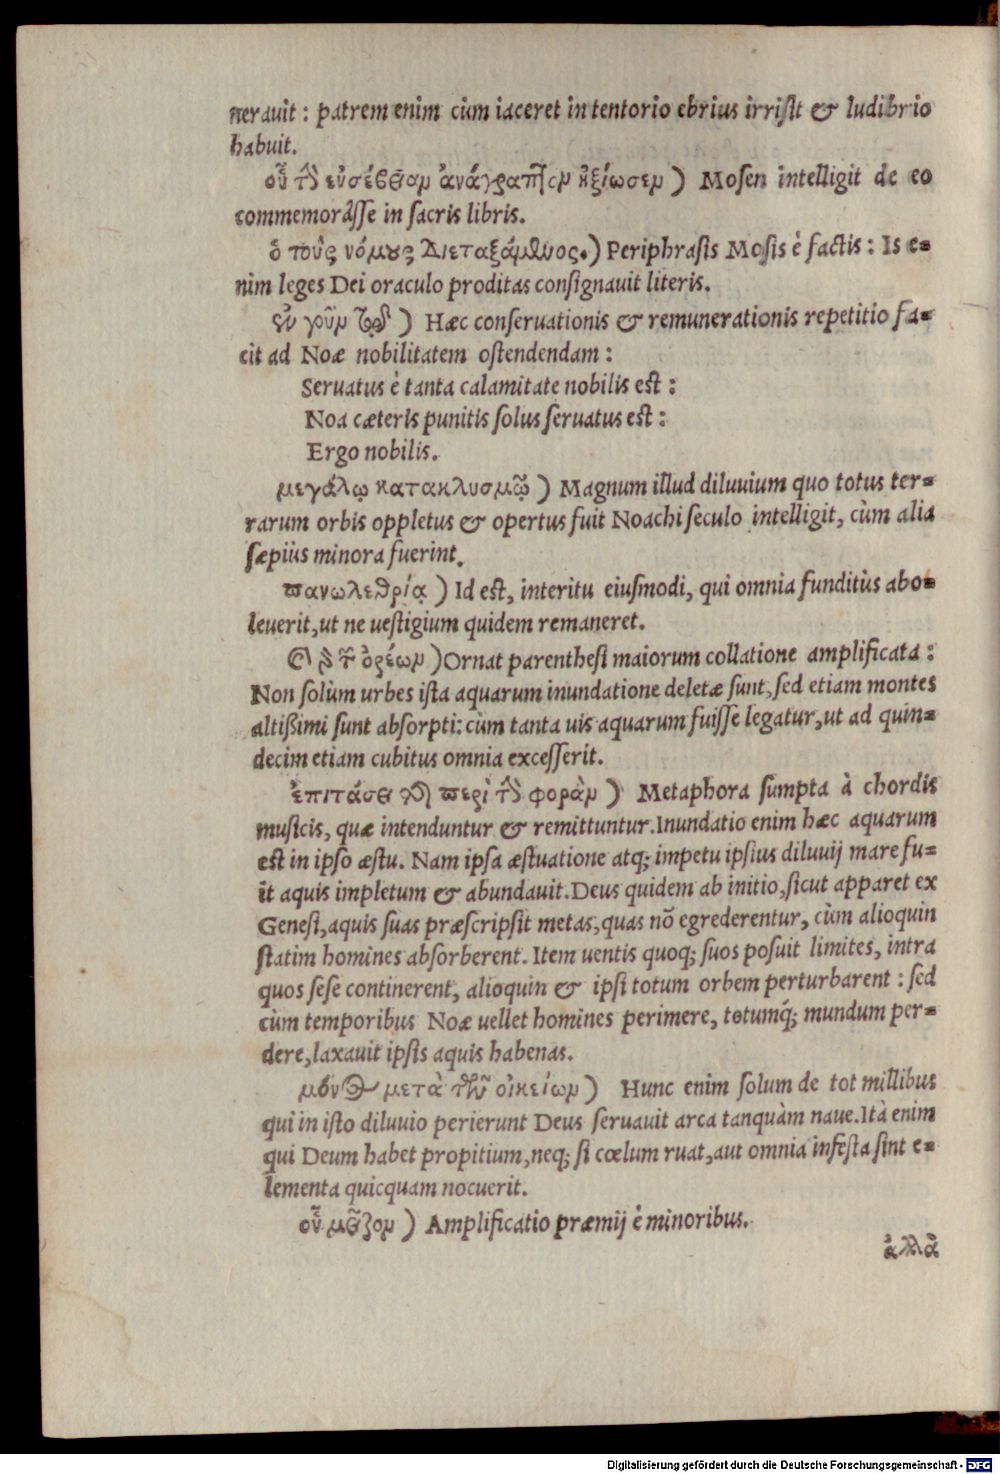 nerauit : patrem enim cùm iaceret in tentorio ebrius irrisit & ludibrio
habuit.
οὗ τὴν εὐσέβειαν ἀνάγραπτον ἠξίωσεν ) Mosen intelligit de eo
commemorâsse in sacris libris.
ὁ τοὺς νόμους διεταξάμενος.) Periphrasis Mosis è factis : Is e=
nim leges Dei oraculo proditas consignauit literis.
γοῦν ) Hæc conseruationis & remunerationis repetitio fa=
cit ad Noæ nobilitatem ostendendam :
Seruatus è tanta calamitate nobilis est :
Noa cæteris punitis solus seruatus est :
Ergo nobilis.
μεγάλῳ κατακλυσμῷ ) Magnum illud diluuium quo totus ter=
rarum orbis oppletus & opertus fuit Noachi seculo intelligit, cùm alia
sæpiùs minora fuerint.
πανωλεθρίᾳ ) Id est, interitu eiusmodi, qui omnia funditùs abo=
leuerit, ut ne uestigium quidem remaneret.
ὀρέων ) Ornat parenthesi maiorum collatione amplificata :
Non solùm urbes ista aquarum inundatione deletæ sunt, sed etiam montes
altißimi sunt absorpti: cùm tanta uis aquarum fuisse legatur, ut ad quin=
decim etiam cubitus omnia excesserit.
ἐπιτάσει τῇ περὶ τὴν φορὰν ) Metaphora sumpta à chordis
musicis, quæ intenduntur & remittuntur. Inundatio enim hæc aquarum
est in ipso æstu. Nam ipsa æstuatione atq; impetu ipsius diluuij mare fu=
it aquis impletum & abundauit. Deus quidem ab initio, sicut apparet ex
Genesi, aquis suas præscripsit metas, quas nõ egrederentur, cùm alioquin
statim homines absorberent. Item uentis quoq; suos posuit limites, intra
quos sese continerent, alioquin & ipsi totum orbem perturbarent : sed
cùm temporibus Noæ uellet homines perimere, totumq́; mundum per=
dere, laxauit ipsis aquis habenas.
μόνος μετὰ τῶν οἰκείων ) Hunc enim solum de tot millibus
qui in isto diluuio perierunt Deus seruauit arca tanquàm naue. Ità enim
qui Deum habet propitium, neq; si cœlum ruat, aut omnia infesta sint e=
lementa quicquam nocuerit.
οὗ μεῖζον ) Amplificatio præmij è minoribus.
ἀλλὰ
Digitalisierung gefördert durch die Deutsche Forschungsgemeinschaft - DFG